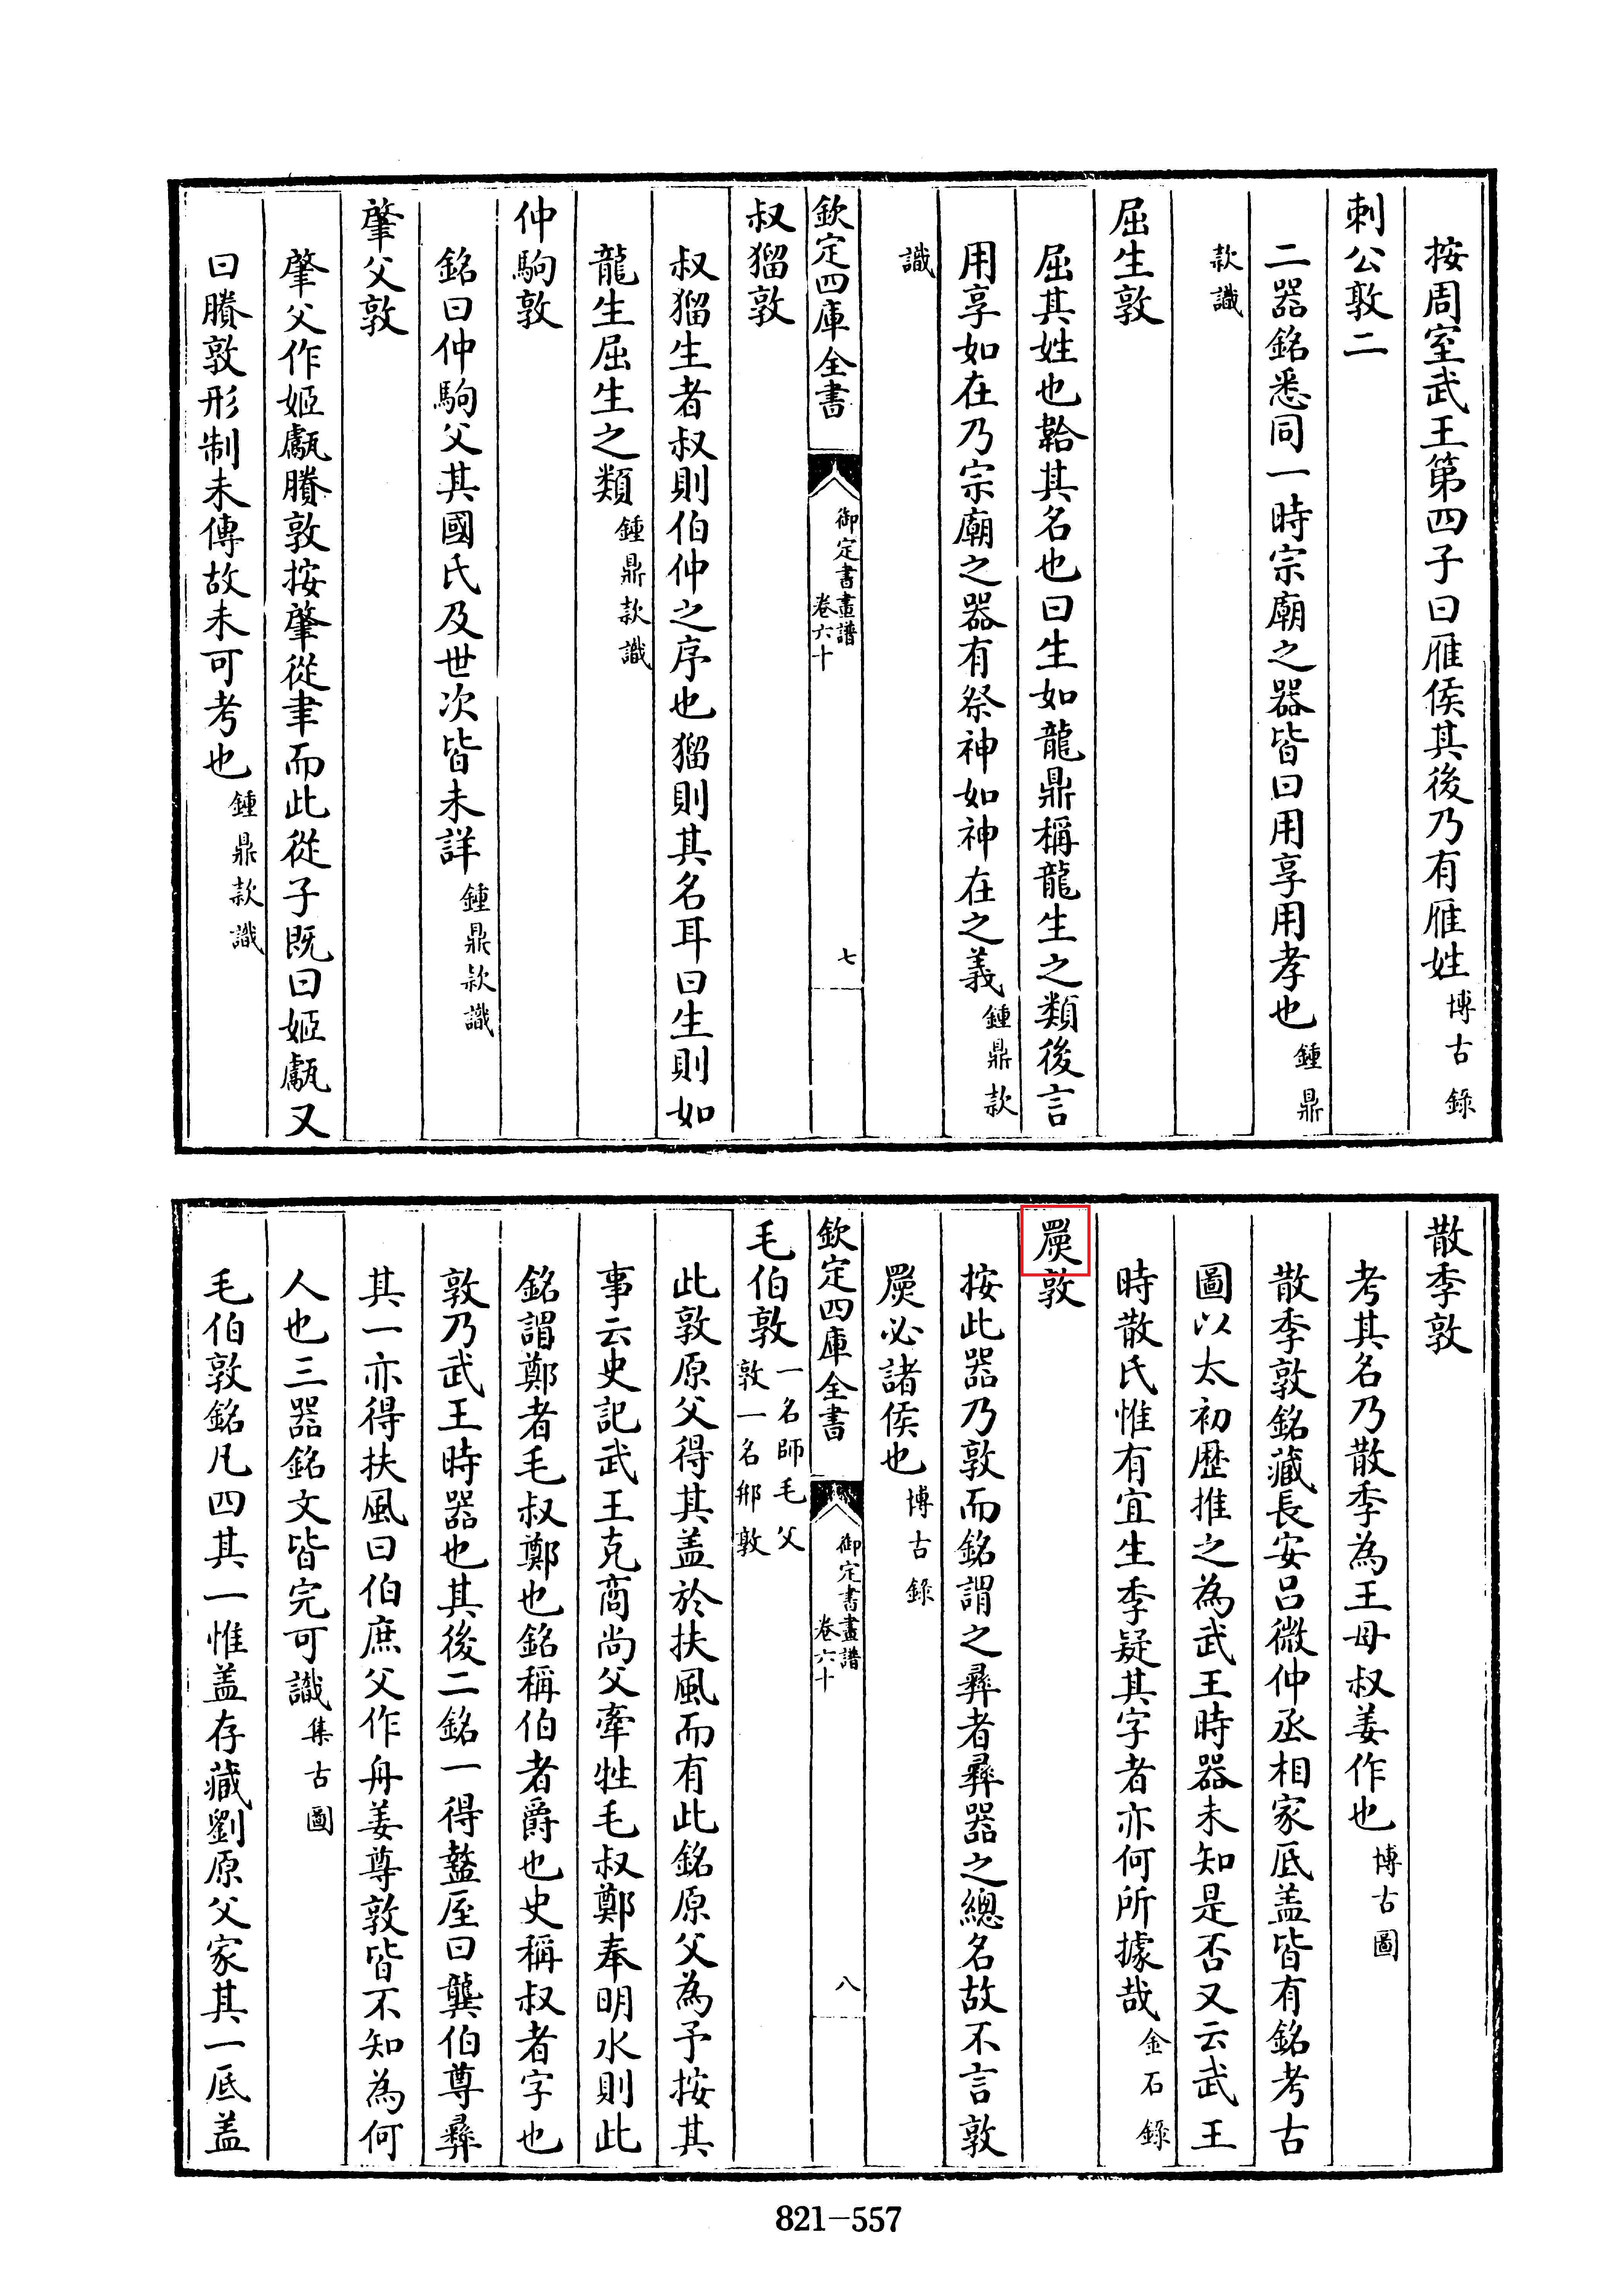 按周室武王第四子曰雁侯其後乃有雁姓博古錄
刺公敦二
二器銘悉同一時宗廟之器皆曰用享用孝也鍾鼎
款識
屈生敦
屈其姓也韐其名也曰生如龍鼎稱龍生之類後言
用享如在乃宗廟之器有祭神如神在之義鍾鼎款
識
欽定四庫全書
御定書畫譜
卷六十
七
叔㺅敦
叔㺅生者叔則伯仲之序也㺅則其名耳曰生則如
龍生屈生之類鍾鼎款識
仲駒敦
銘曰仲駒父其國氏及世次皆未詳鍾鼎款識
肇父敦
肇父作姬甗賸敦按肇從聿而此從子既曰姬甗又
曰賸敦形制未傳故未可考也鍾鼎款識
散季敦
考其名乃散季為王母叔姜作也博古圖
散季敦銘藏長安呂微仲丞相家底盖皆有銘考古
圖以太初歴推之為武王時器未知是否又云武王
時散氏惟有宜生季疑其字者亦何所據哉金石錄
敦
按此器乃敦而銘謂之彞者彞器之總名故不言敦
必諸侯也博古錄
欽定四庫全書
御定書畫譜
卷六十
八
毛伯敦一名師毛父敦一名敦
此敦原父得其盖於扶風而有此銘原父為予按其
事云史記武王克商尚父牽牲毛叔鄭奉明水則此
銘謂鄭者毛叔鄭也銘稱伯者爵也史稱叔者字也
敦乃武王時器也其後二銘一得盩厔曰龔伯尊彞
其一亦得扶風曰伯庶父作舟姜尊敦皆不知為何
人也三器銘文皆完可識集古圖
毛伯敦銘凡四其一惟盖存藏劉原父家其一底盖
821-557